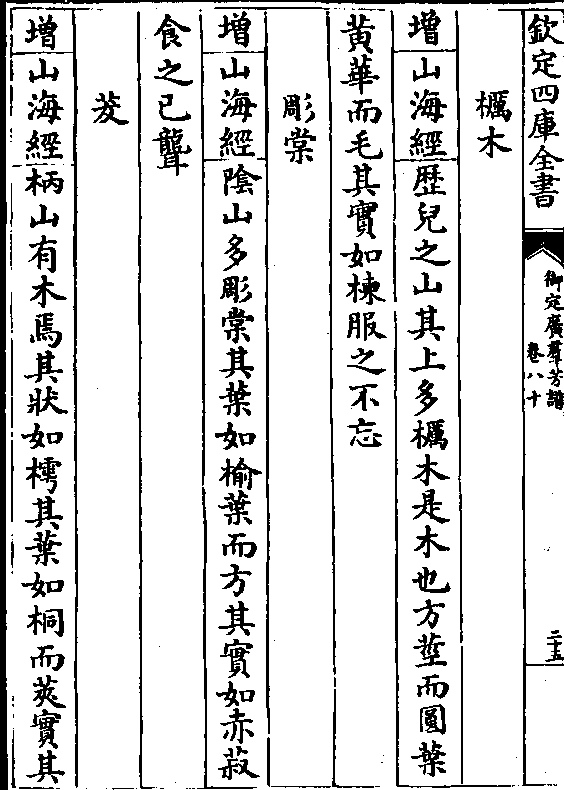 欽定四庫全書
御定廣羣芳譜
卷八十
二十五
櫔木
增山海經歴兒之山其上多櫔木是木也方莖而圓葉
黄華而毛其實如楝服之不忘
彫棠
增山海經隂山多彫棠其葉如榆葉而方其實如赤菽
食之已聾
茇
增山海經柄山有木焉其狀如樗其葉如桐而莢實其